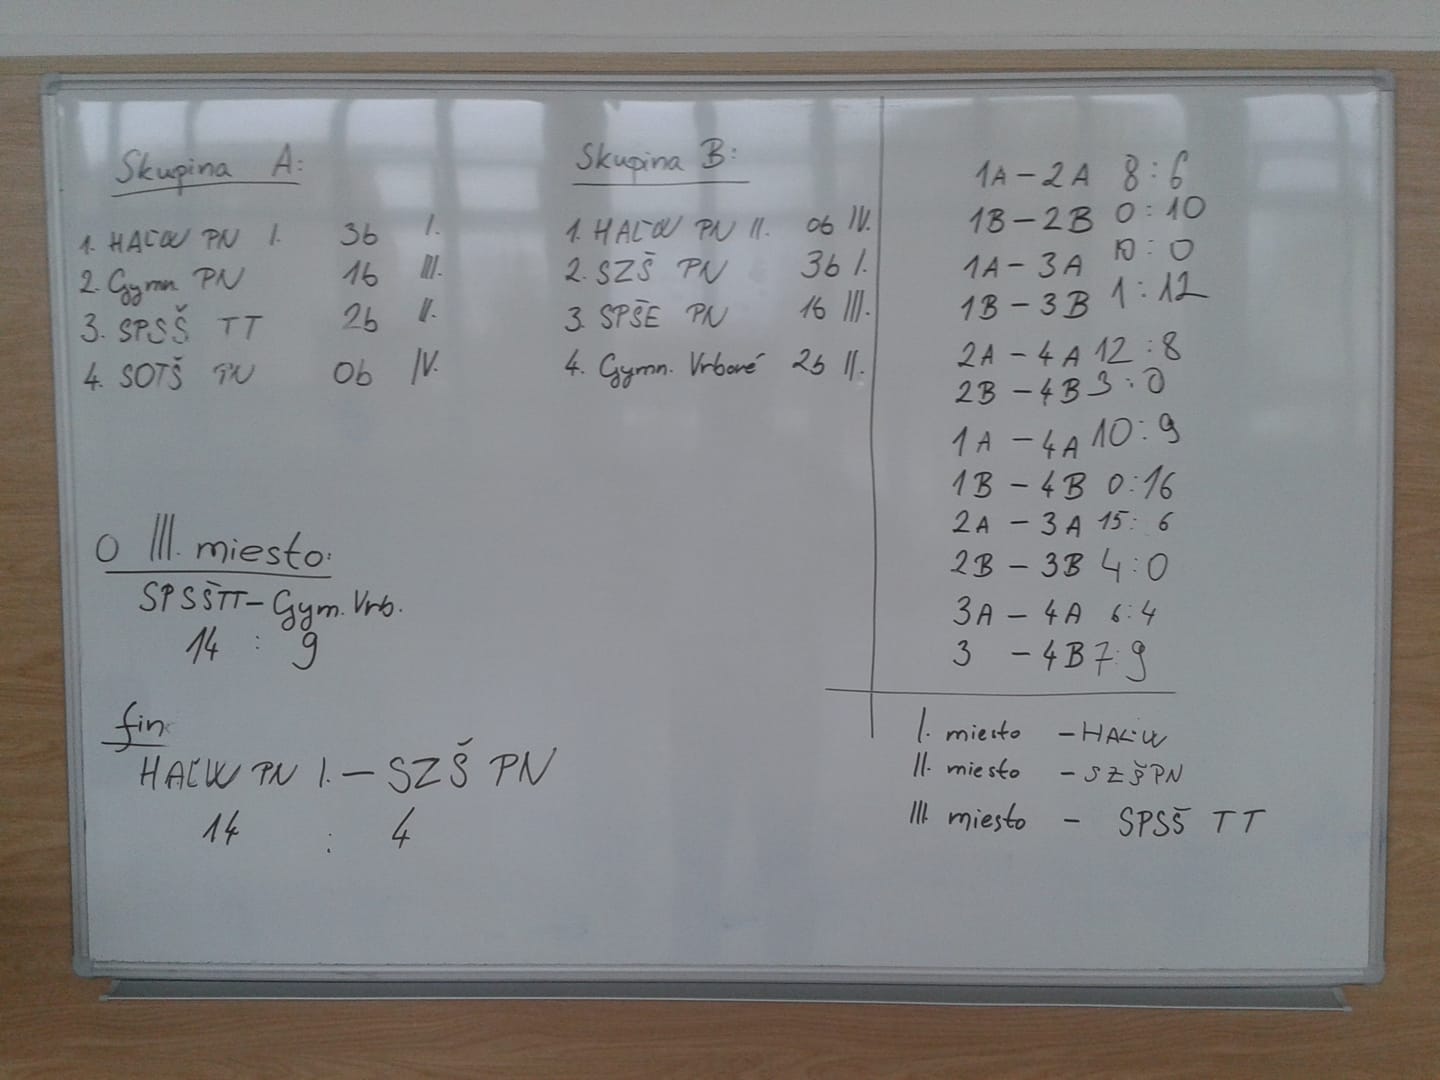 Skupina A:
1. HAĽW PN I. 3b I.
2. Gymn PN 1b III.
3. SPSŠ TT 2b II.
4. SOTŠ PN 0b IV.
Skupina B:
1. HAĽW PN II. 0b IV.
2. SZŠ PN 3b I.
3. SPŠE PN 1b III.
4. Gymn. Vrbové 2b II.
O III. miesto:
SPSŠTT - Gym. Vrb.
14 : 9
fin
HAĽW PN I. - SZŠ PN
14 : 4
1A - 2A 8:6
1B - 2B 0:10
1A - 3A 10:0
1B - 3B 1:12
2A - 4A 12:8
2B - 4B 3:0
1A - 4A 10:9
1B - 4B 0:16
2A - 3A 15:6
2B - 3B 4:0
3A - 4A 6:4
3 - 4B 7:9
I. miesto - HAĽW
II. miesto - SZŠPN
III miesto - SPSŠ TT